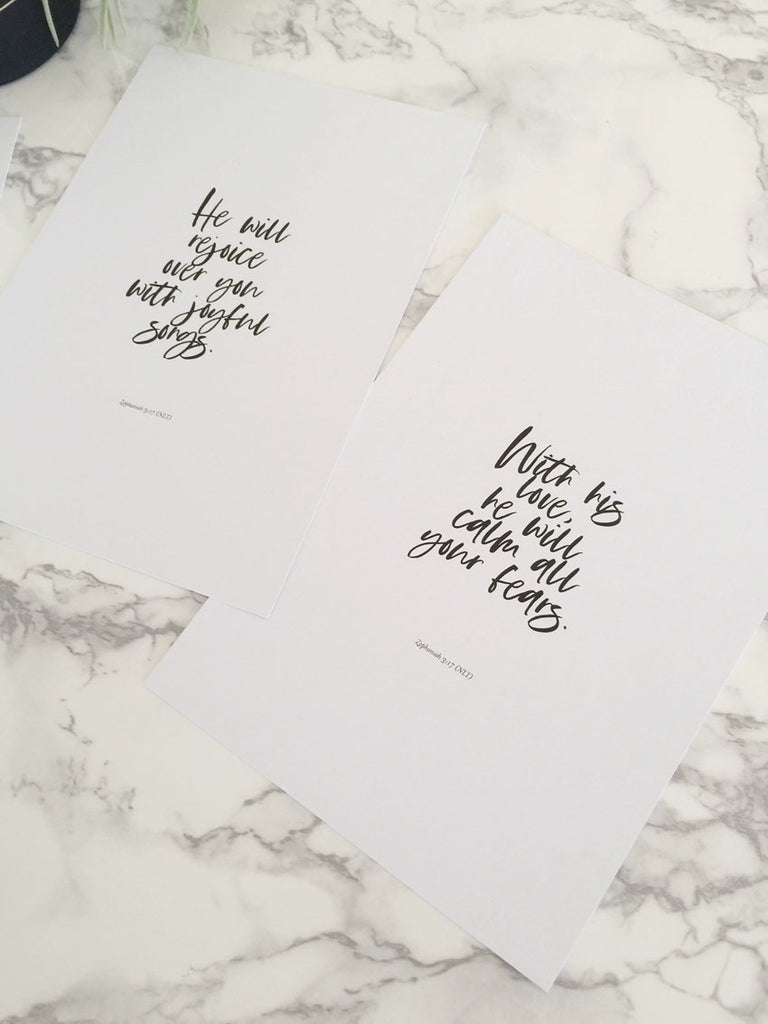 He will
rejoice
over you
with joyful
songs.
Zephaniah 3:17 (NLT)
With his
love,
he will
calm all
your fears.
Zephaniah 3:17 (NLT)